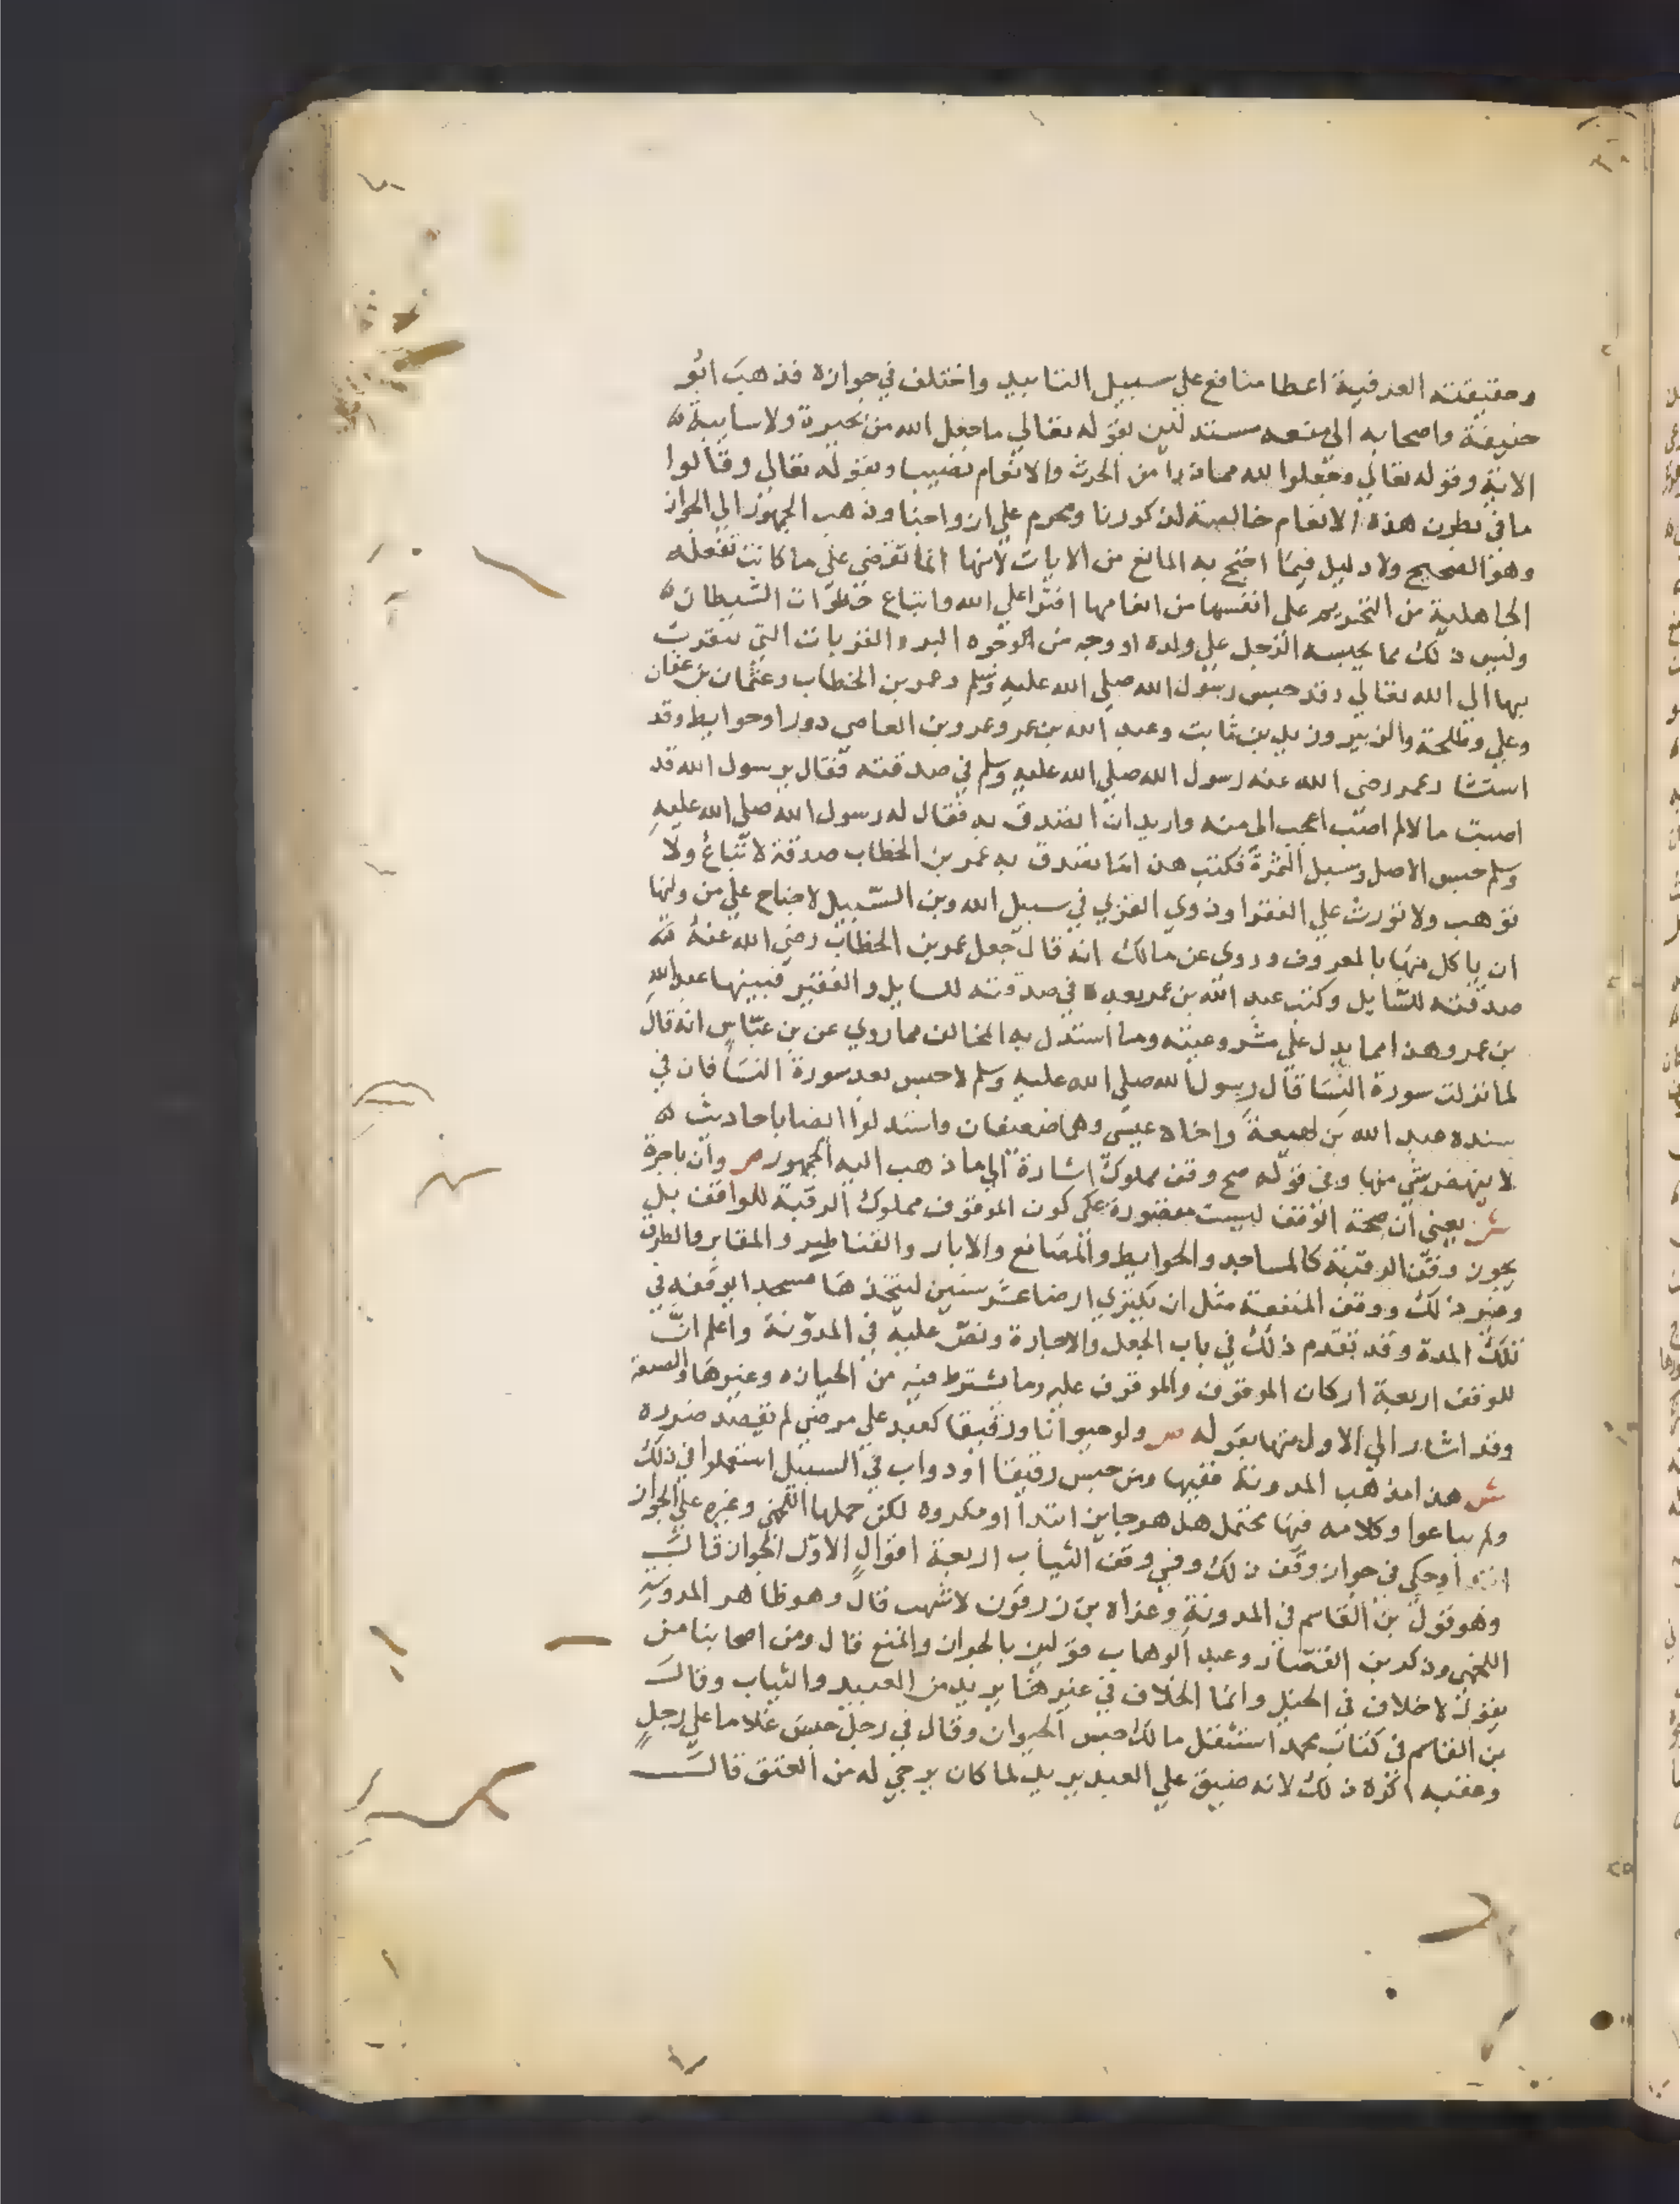 وحقيقته العرفية اعطا منافع علي سبيل التابيد واختلف في جوازه فذهب ابو
حنيفة واصحابه الي منعه مستدلين بقوله تعالي ما جعل الله من بحيرة ولا سايبة
الاية وقوله تعالي وجعلوا لله مما ذرا من الحرث والانعام نصيبا وبقوله تعالي وقالوا
ما في بطون هذه الانعام خالصة لذكورنا ومحرم علي ازواجنا وذهب الجمهور الي الجواز
وهو الصحيح ولا دليل فيما احتج به المانع من الايات لانها انما تقتضي علي ما كانت تفعله
الجاهلية من التحريم علي انفسها من انعامها افترا علي الله واتباع خطوات الشيطان
وليس ذلك مما يحبسه الرجل علي ولده او وجه من الوجوه البر والقربات التي يتقرب
بها الي الله تعالي وقد حبس رسول الله صلي الله عليه وسلم وعمر بن الخطاب وعثمان بن عفان
وعلي وطلحة والزبير وزيد بن ثابت وعبد الله بن عمر وعمرو بن العاصي دورا وحوايط وقد
استشار عمر رضي الله عنه رسول الله صلي الله عليه وسلم في صدقته فقال يرسول الله قد
اصبت مالا لم اصب اعجب الي منه واريد ان اتصدق به فقال له رسول الله صلي الله عليه
وسلم حبس الاصل وسبل الثمرة فكتب هذا ما تصدق به عمر بن الخطاب صدقة لا تباع ولا
توهب ولا تورث علي الفقرا وذوي القربي في سبيل الله وبن السبيل لا جناح علي من وليها
ان ياكل منها بالمعروف وروي عن مالك انه قال جعل عمر بن الخطاب رضي الله عنه
صدقته للسايل وكتب عبد الله بن عمر بعده في صدقته للسايل والفقير فبينها عبد الله
بن عمر وهذا مما يدل علي مشروعيته وما استدل به المخالف مما روي عن بن عباس انه قال
لما نزلت سورة النسا قال رسول الله صلي الله عليه وسلم لا حبس بعد سورة النسا فان في
سنده عبد الله بن لهيعة واخاه عيسي وهما ضعيفان واستدلوا ايضا باحاديث
لا ينهض شي منها وفي قوله صح وقف مملوك اشارة الي ما ذهب اليه الجمهور ص وان باجرة
ش يعني ان صحة الوقف ليست مقصورة علي كون الموقوف مملوك الرقبة للواقف بل
يجوز وقف الرقبة كالمساجد والحوايط والمصانع والابار والقناطير والمقابر والطرق
وغير ذلك ووقف المنفعة مثل ان يكتري ارضا عشر سنين ليتخذها مسجدا يوقفه في
تلك المدة وقد تقدم ذلك في باب الجعل والاجارة ونص عليه في المدونة واعلم ان
للوقف اربعة اركان الموقوف والموقوف عليه وما يشترط فيه من الحيازه وغيرها والصيغة
وقد اشار الي الاول منها بقوله ص ولو حيوانا ورقيقا كعبد علي مرضي لم يقصد ضرره
ش هذا مذهب المدونة ففيها ومن حبس رقيقا او دواب في السبيل استعملوا في ذلك
ولم يباعوا وكلامه فيها يحتمل هل هو جايز ابتدا او مكروه لكن حملها اللخمي وغيره علي الجواز
ابتدا وحكي في جواز وقف ذلك وفي وقف الثياب اربعة اقوال الاول الجواز قال
وهو قول بن القاسم في المدونة وعزاه بن زرقون لاشهب قال وهو ظاهر المدونة
اللخمي وذكر بن القصار وعبد الوهاب قولين بالجواز والمنع قال ومن اصحابنا من
يقول لا خلاف في الخيل وانما الخلاف في غيرها يريد من العبيد والثياب وقال
بن القاسم في كتاب محمد استثقل مالك حبس الحيوان وقال في رجل حبس غلاما علي رجل
وعقبه اكره ذلك لانه ضيق علي العبد يريد لما كان يرجي له من العتق قال